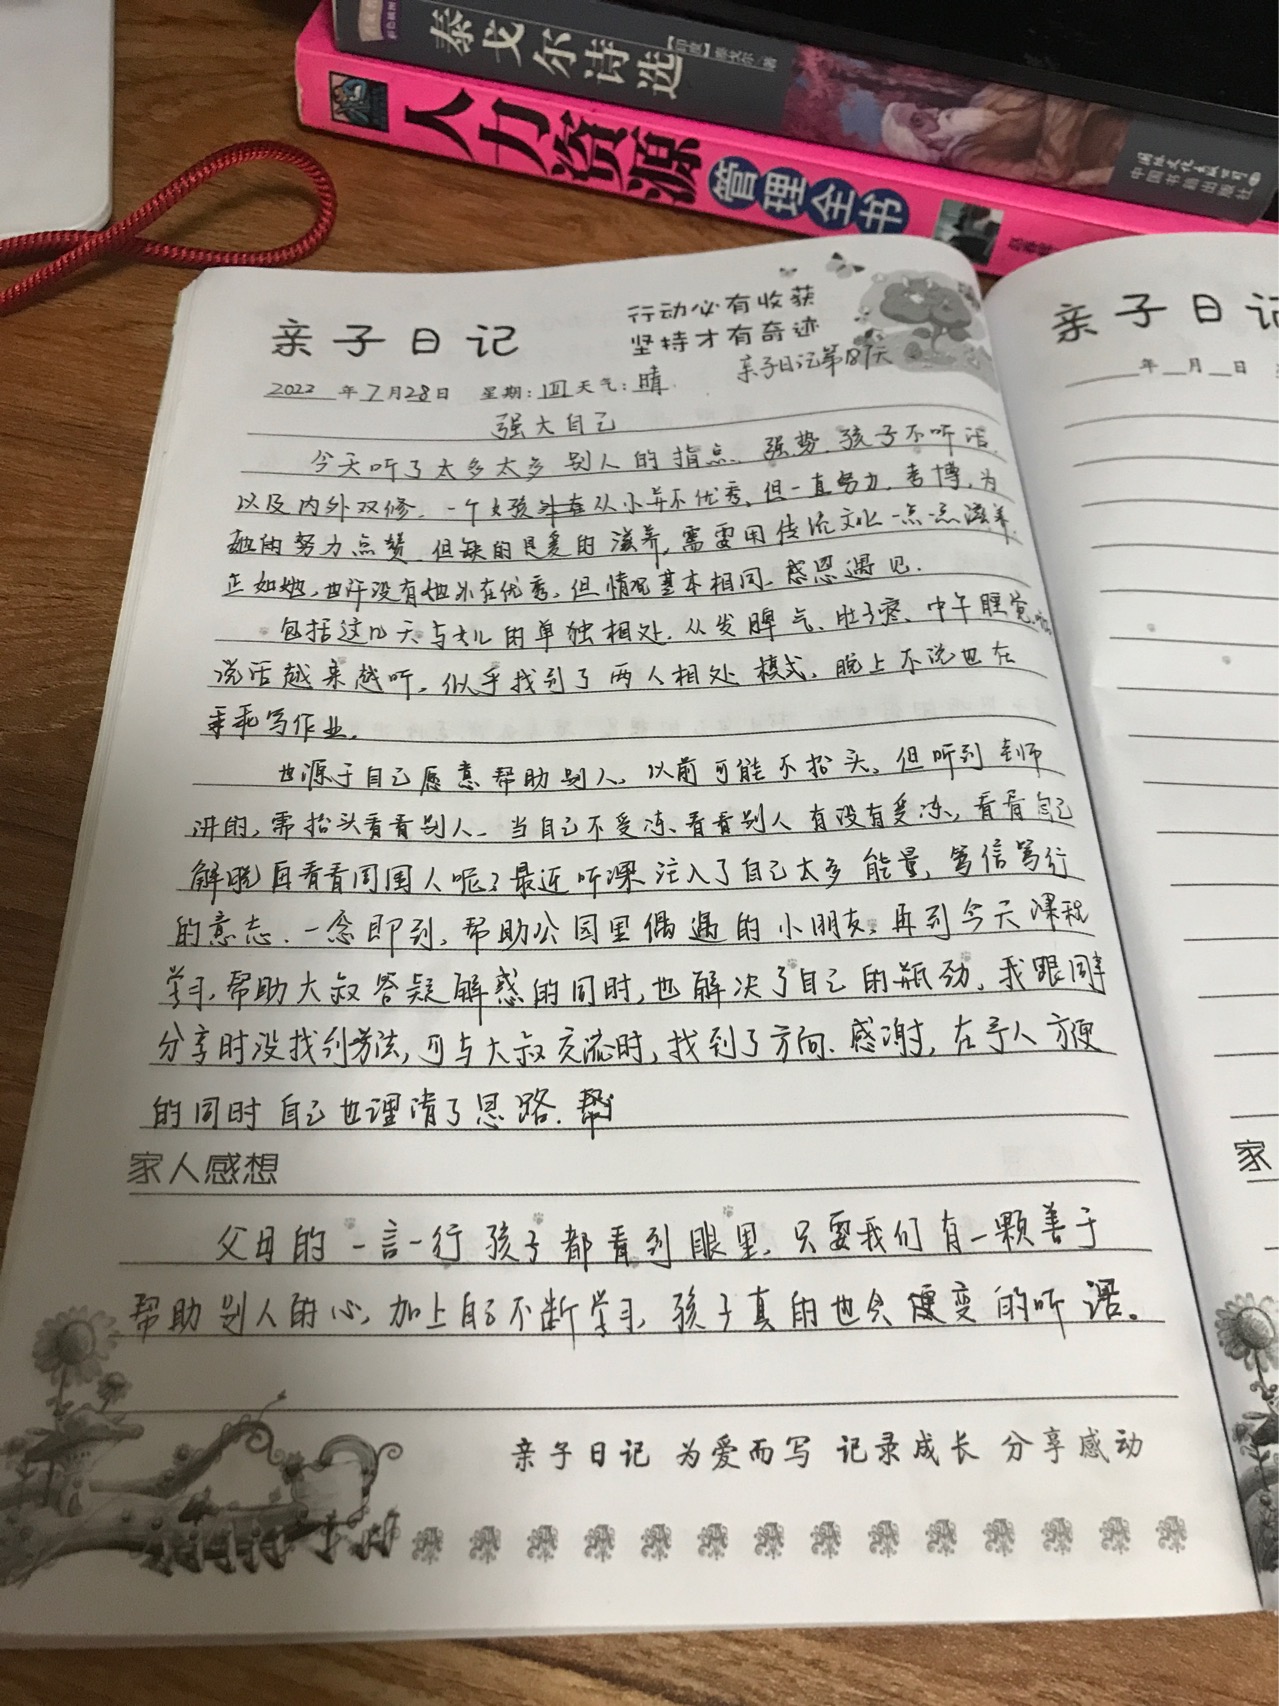 泰戈尔诗选
【印度】泰戈尔 著
中国书籍出版社
人力资源
管理全书
亲子日记
行动必有收获
坚持才有奇迹
亲子日记第187天
2022年7月28日 星期:四 天气:晴
强大自己
今天听了太多太多别人的指点、强势、孩子不听话,
以及内外双修、一个女孩从小并不优秀,但一直努力,考博,为
她的努力点赞,但缺的是爱的滋养,需要用传统文化一点一点滋养.
正如她,也许没有她外在优秀,但情况基本相同,感恩遇见.
包括这几天与女儿的单独相处,从发脾气、肚子疼、中午睡觉
说话越来越听,似乎找到了两人相处模式,晚上不说也在
乖乖写作业,
也源于自己愿意帮助别人,以前可能不抬头,但听到老师
讲的,需抬头看看别人、当自己不受冻、看看别人有没有受冻,看看自己
解脱再看看周围人呢?最近听课注入了自己太多能量,笃信笃行
的意志、一念即到,帮助公园里偶遇的小朋友,再到今天课程
学习,帮助大叔答疑解惑的同时,也解决了自己的瓶劲,我跟同事
分享时没找到方法,可与大叔交流时,找到了方向、感谢,在予人方便
的同时自己也理清了思路.帮
家人感想
父母的一言一行孩子都看到眼里,只要我们有一颗善于
帮助别人的心,加上自己不断学习,孩子真的也会变的听话。
亲子日记 为爱而写 记录成长 分享感动
亲子日记
年 月 日
家